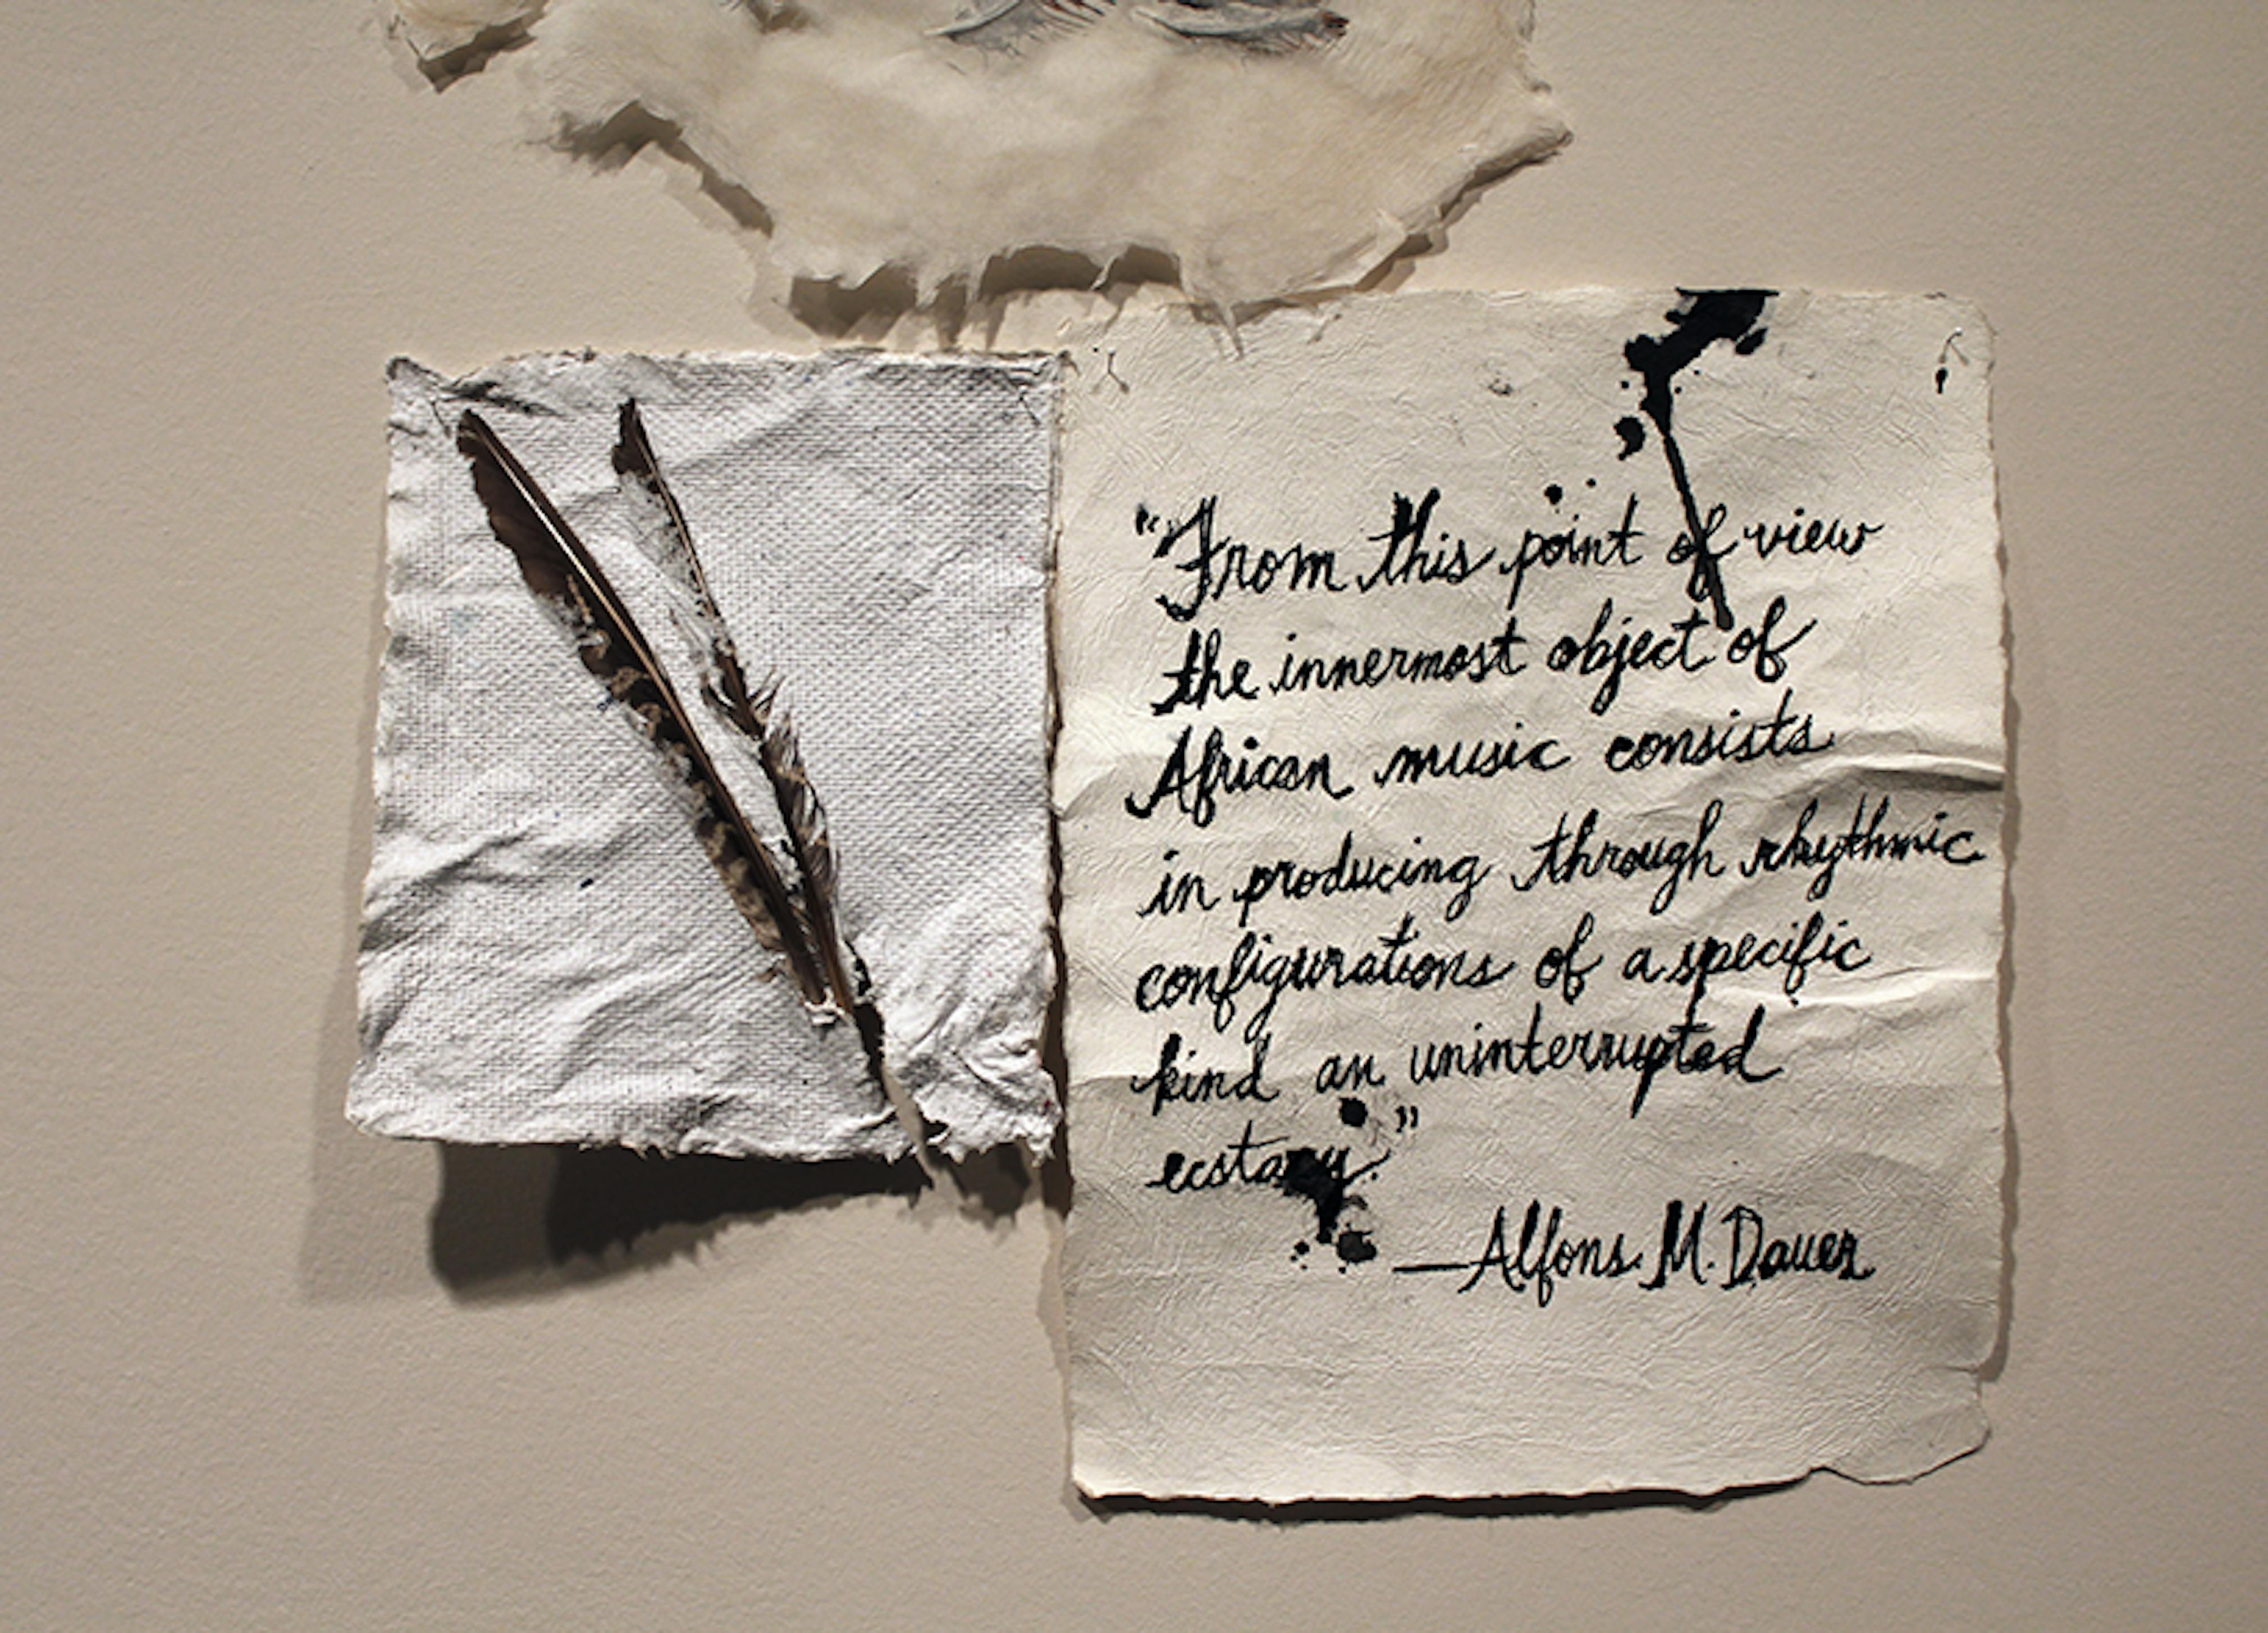 "From this point of view
the innermost object of
African music consists
in producing through rhythmic
configurations of a specific
kind an uninterrupted
ecstasy."
—Alfons M. Dauer